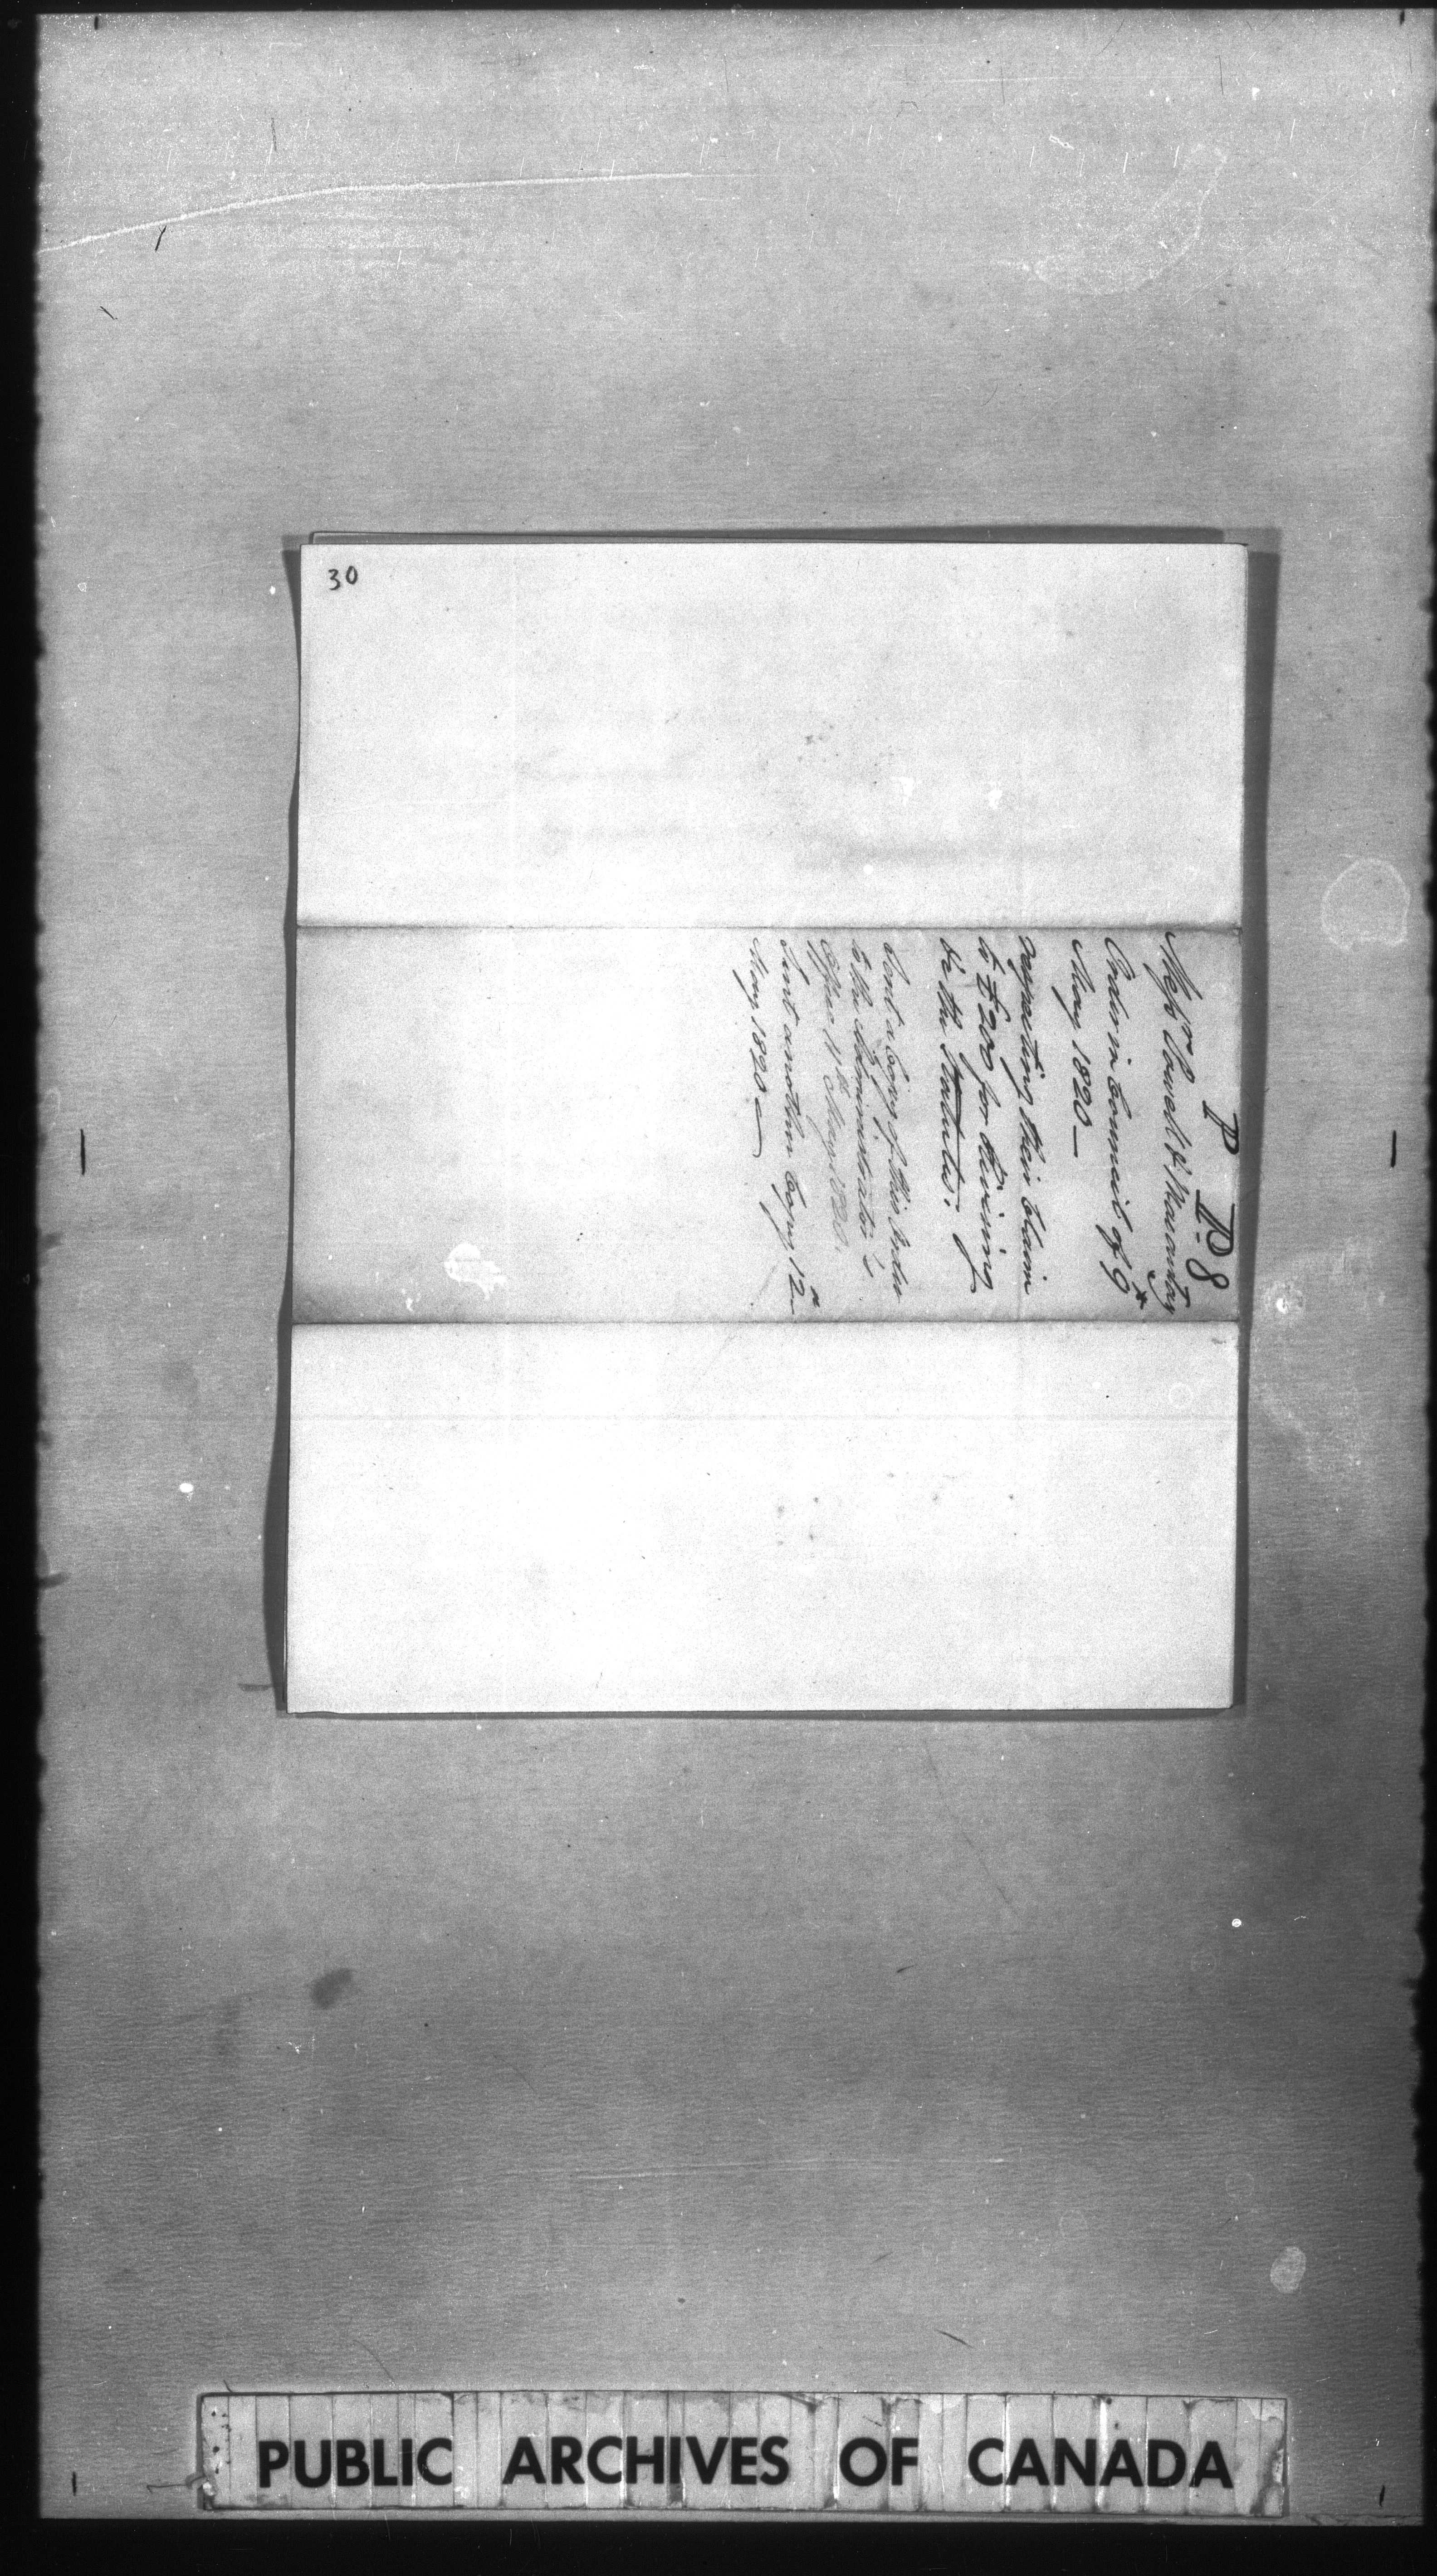 30
P P. 8
Messrs Powell & Macaulay
Order in Council of 9th
May 1820—
respecting their claim
to £200 for revising
the Statutes.
Sent a Copy of this Order
to the Administrator's
Office 11th May 1820.
Sent another Copy 12th
May 1820—
PUBLIC ARCHIVES OF CANADA